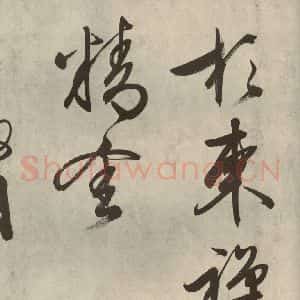 於東禪
精舍
Shufawang.CN